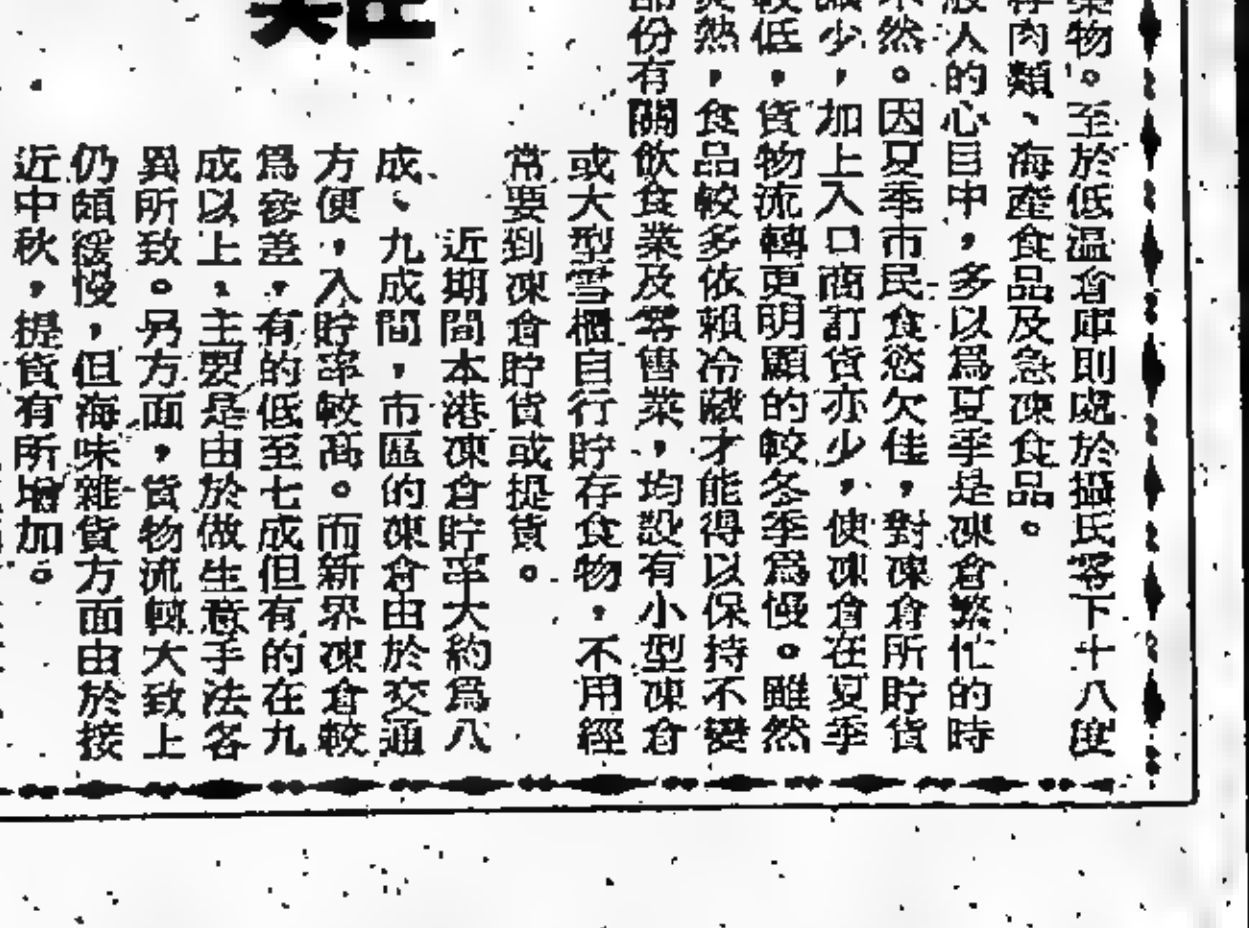 藥物。至於低温倉庫則處於攝氏零下十八度
肉類、海產食品及急凍食品。
般人的心目中，多以爲夏季是凍倉繁忙的時
不然。因夏季市民食慾欠佳，對凍倉所貯貨
減少，加上入口商訂貨亦少，使凍倉在夏季
較低，貨物流轉更明顯的較冬季爲慢。雖然
炎熱，食品較多依賴冷藏才能得以保持不變
部份有關飲食業及零售業，均設有小型凍倉
或大型雪櫃自行貯存食物，不用經
常要到凍倉貯貨或提貨。
近期間本港凍倉貯率大約爲八
成、九成間，市區的凍倉由於交通
方便，入貯率較高。而新界凍倉較
爲參差，有的低至七成但有的在九
成以上，主要是由於做生意手法各
異所致。另方面，貨物流轉大致上
仍頗緩慢，但海味雜貨方面由於接
近中秋，提貨有所增加。